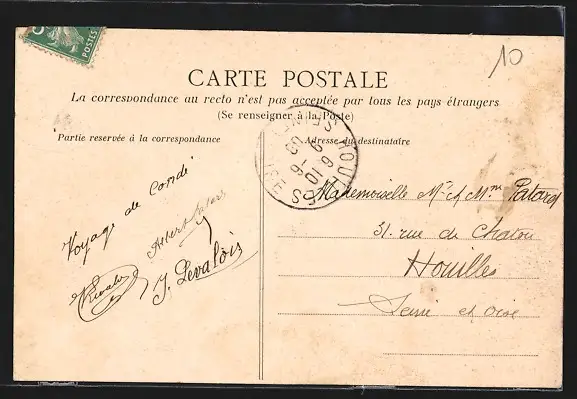 5
POSTES
10
CARTE POSTALE
La correspondance au recto n'est pas acceptée par tous les pays étrangers
(Se renseigner à la Poste)
Partie reservée à la correspondance
Voyage de Condé
Albert
J. Levalois
Adresse du destinataire
HOUILLES
Mademoiselle Mr & Mme
31. rue de Chatou
Houilles
Seine et oise